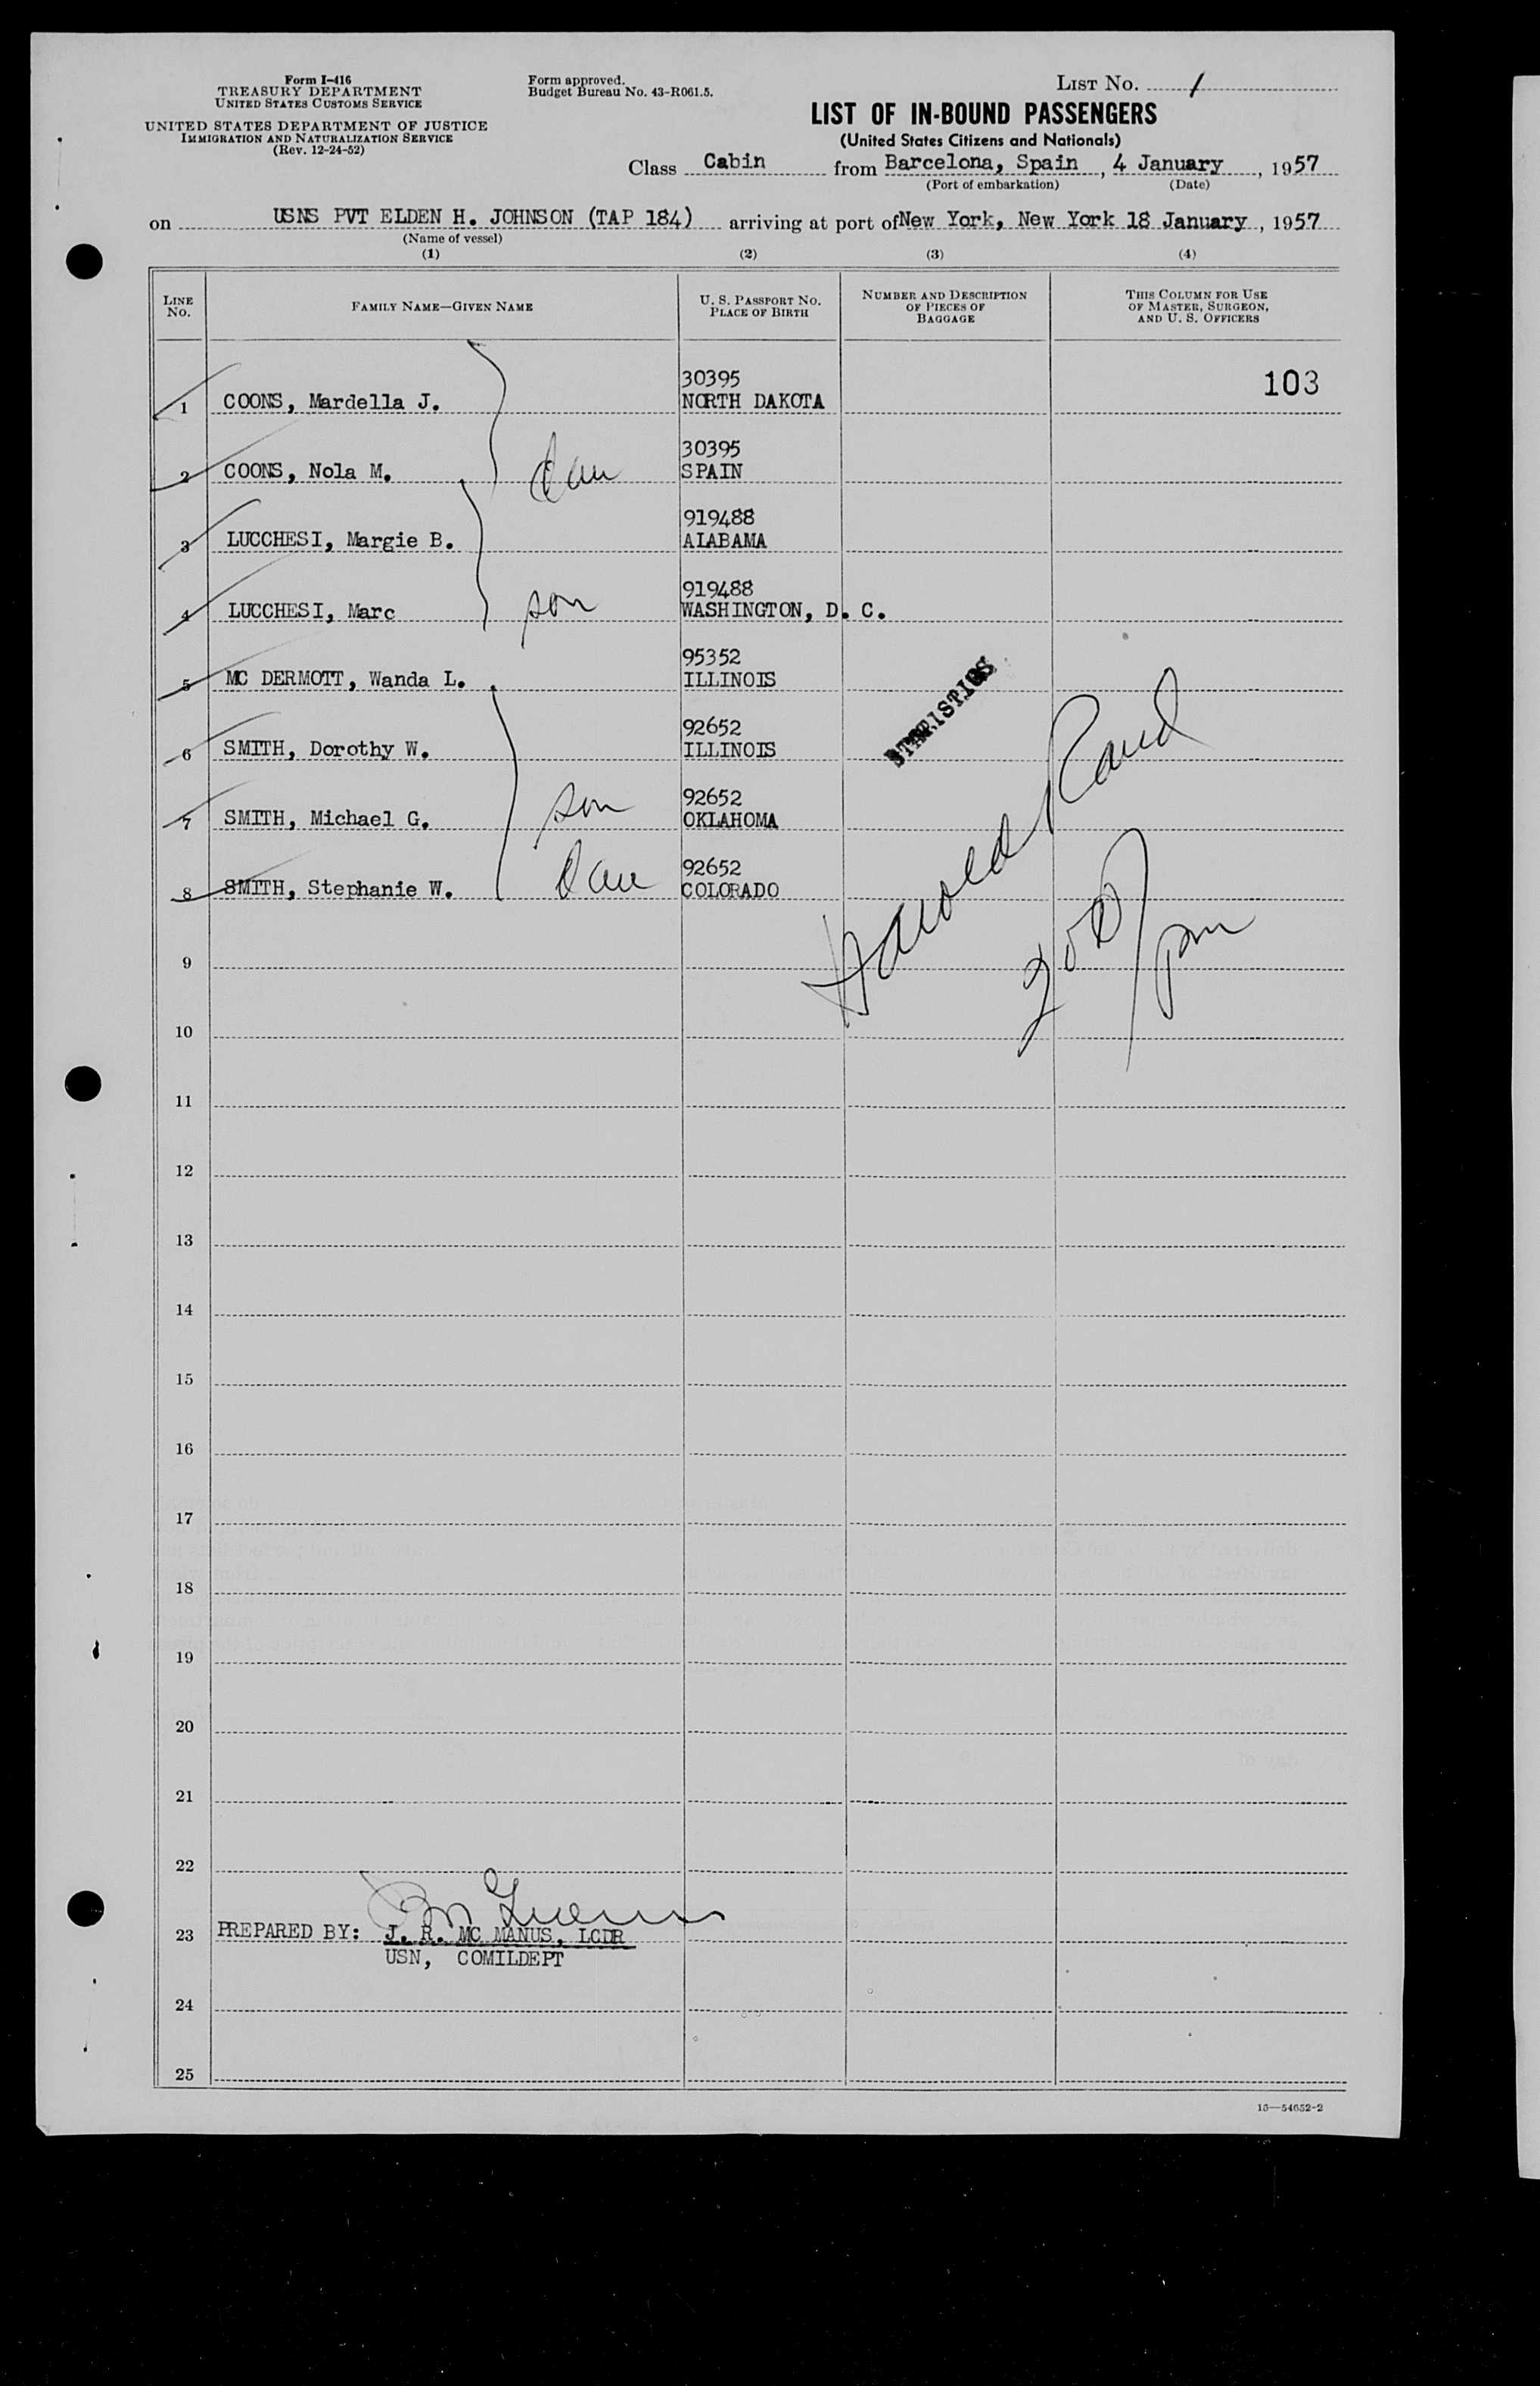 Form I-416
TREASURY DEPARTMENT
UNITED STATES CUSTOMS SERVICE
UNITED STATES DEPARTMENT OF JUSTICE
IMMIGRATION AND NATURALIZATION SERVICE
(Rev. 12-24-52)
Form approved.
Budget Bureau No. 43-R061.5.
LIST NO. 1
LIST OF IN-BOUND PASSENGERS
(United States Citizens and Nationals)
Class Cabin from Barcelona, Spain, 4 January, 1957
(Port of embarkation) (Date)
on USNS PVT ELDEN H. JOHNSON (TAP 184) arriving at port of New York, New York 18 January, 1957
(Name of vessel)
(1) (2) (3) (4)
LINE NO. FAMILY NAME—GIVEN NAME U. S. PASSPORT NO. PLACE OF BIRTH NUMBER AND DESCRIPTION OF PIECES OF BAGGAGE THIS COLUMN FOR USE OF MASTER, SURGEON, AND U. S. OFFICERS
30395 103
1 COONS, Mardella J. NORTH DAKOTA
30395
2 COONS, Nola M. dau SPAIN
919488
3 LUCCHESI, Margie B. ALABAMA
919488
4 LUCCHESI, Marc son WASHINGTON, D. C.
95352
5 MC DERMOTT, Wanda L. ILLINOIS
92652
6 SMITH, Dorothy W. ILLINOIS
92652
7 SMITH, Michael G. son OKLAHOMA
92652
8 SMITH, Stephanie W. dau COLORADO
STATISTICS
Harold Rand
pm
9
10
11
12
13
14
15
16
17
18
19
20
21
22
23 PREPARED BY: J. R. MC MANUS, LCDR
USN, COMILDEPT
24
25
16—54652-2